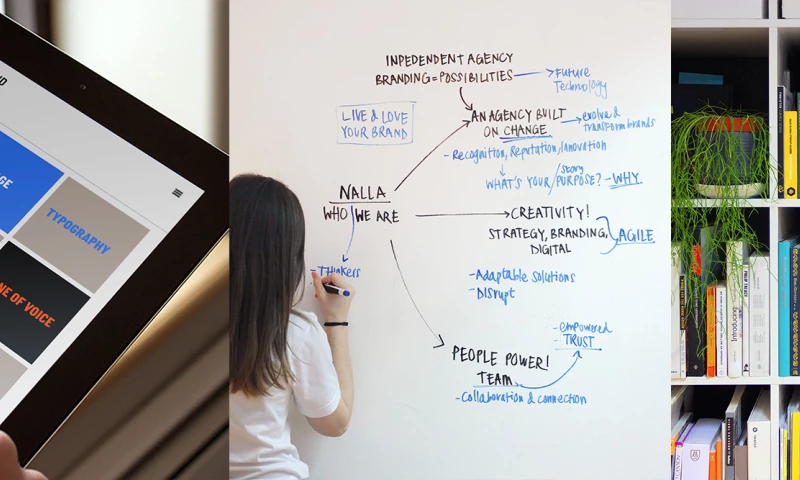 TYPOGRAPHY
NE OF VOICE
INPEDENDENT AGENCY
BRANDING = POSSIBILITIES
Future
Technology
LIVE & LOVE
YOUR BRAND
AN AGENCY BUILT
ON CHANGE
evolve &
transform brands
- Recognition, Reputation, Innovation
WHAT'S YOUR / PURPOSE? - WHY
Story
NALLA
WHO WE ARE
CREATIVITY!
STRATEGY, BRANDING,
DIGITAL
AGILE
- THinkers
- Adaptable solutions
- Disrupt
- empowered
- TRUST
PEOPLE POWER!
TEAM
- Collaboration & connection
Introducing